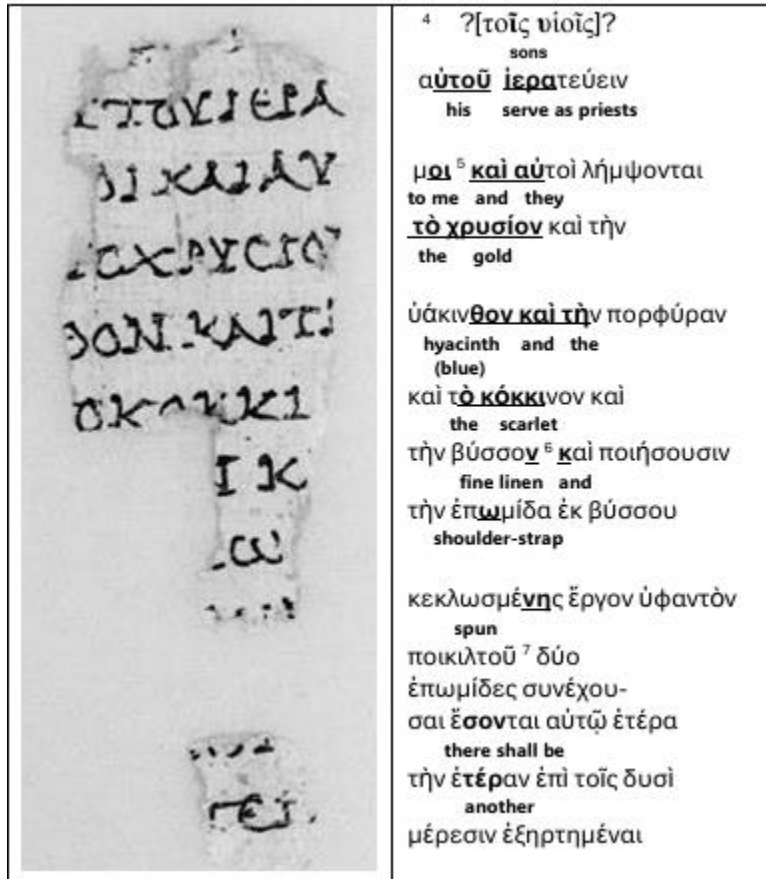 ΥΤΟΥΙΕΡΑ
ΟΙΚΑΙΑΥ
ΤΟΧΡΥϹΙΟ
ΘΟΝΚΑΙΤΗ
ΟΚΟΚΚΙ
Κ
ω
4 ?[τοῖς υἱοῖς]?
sons
αὐτοῦ ἱερατεύειν
his serve as priests
μοι 5 καὶ αὐτοὶ λήμψονται
to me and they
τὸ χρυσίον καὶ τὴν
the gold
ὑάκινθον καὶ τὴν πορφύραν
hyacinth and the
(blue)
καὶ τὸ κόκκινον καὶ
the scarlet
τὴν βύσσον 6 καὶ ποιήσουσιν
fine linen and
τὴν ἐπωμίδα ἐκ βύσσου
shoulder-strap
κεκλωσμένης ἔργον ὑφαντὸν
spun
ποικιλτοῦ 7 δύο
ἐπωμίδες συνέχου-
σαι ἔσονται αὐτῷ ἑτέρα
there shall be
τὴν ἑτέραν ἐπὶ τοῖς δυσὶ
another
μέρεσιν ἐξηρτημέναι